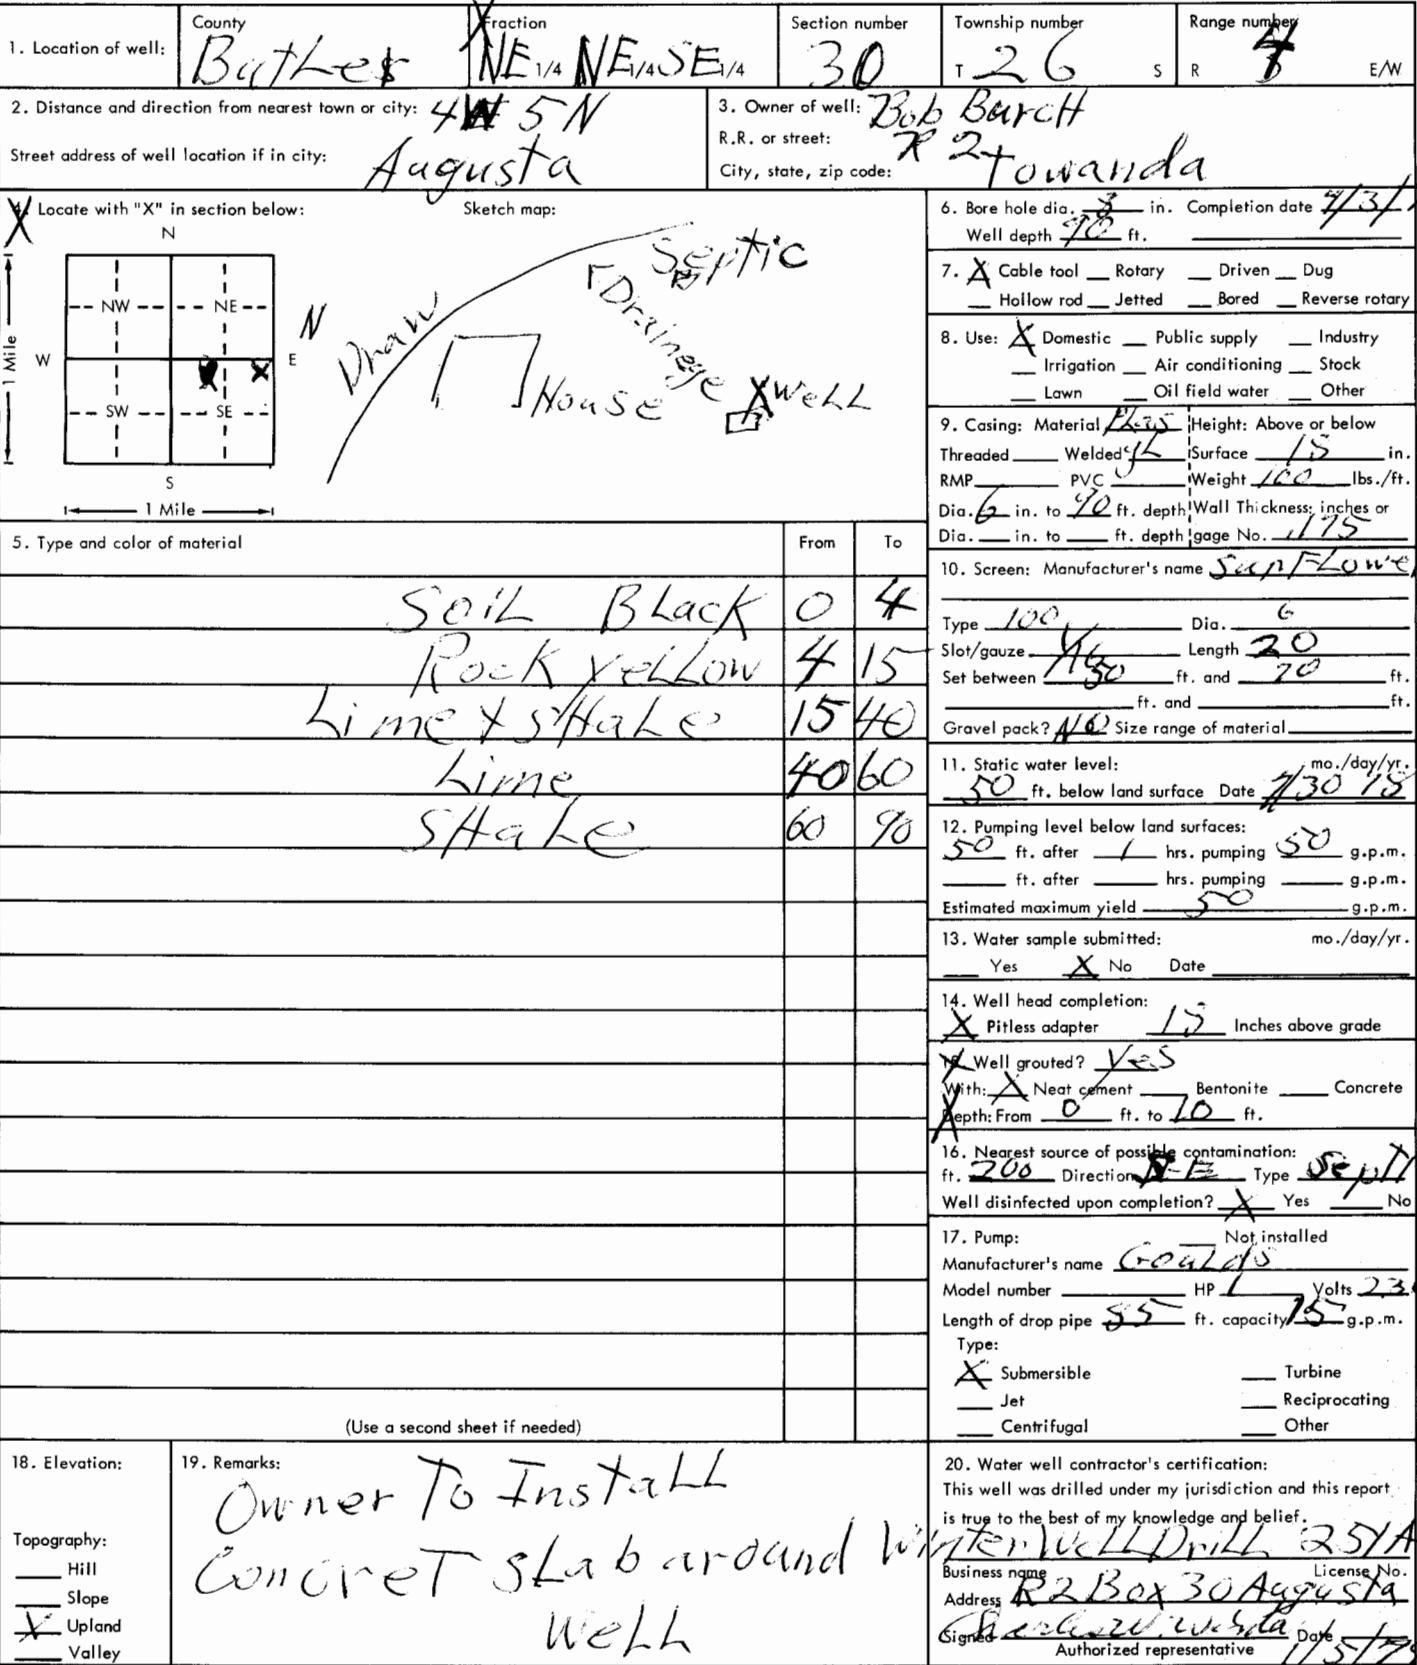 1. Location of well: County Butler Fraction NE 1/4 NE 1/4 SE 1/4 Section number 30 Township number T 26 S Range number R 4 E/W
2. Distance and direction from nearest town or city: 4W 5N
Street address of well location if in city: Augusta
3. Owner of well: Bob Burch
R.R. or street: R 2
City, state, zip code: Towanda
4. Locate with "X" in section below: Sketch map:
N
NW NE
W E
SW SE
S
1 Mile
1 Mile
N
Draw
Septic
Drainege
House
X Well
5. Type and color of material From To
Soil Black 0 4
Rock Yellow 4 15
Lime + SHaLe 15 40
Lime 40 60
SHaLe 60 90
(Use a second sheet if needed)
6. Bore hole dia. 8 in. Completion date
Well depth 90 ft.
7. X Cable tool Rotary Driven Dug
Hollow rod Jetted Bored Reverse rotary
8. Use: X Domestic Public supply Industry
Irrigation Air conditioning Stock
Lawn Oil field water Other
9. Casing: Material Height: Above or below
Threaded Welded Surface 15 in.
RMP PVC Weight 160 lbs./ft.
Dia. 6 in. to 90 ft. depth Wall Thickness: inches or
Dia. in. to ft. depth gage No. .175
10. Screen: Manufacturer's name SunFLower
Type 100 Dia. 6
Slot/gauze 1/16 Length 20
Set between 50 ft. and 70 ft.
ft. and ft.
Gravel pack? NO Size range of material
11. Static water level: mo./day/yr.
50 ft. below land surface Date
12. Pumping level below land surfaces:
50 ft. after 1 hrs. pumping 50 g.p.m.
ft. after hrs. pumping g.p.m.
Estimated maximum yield 50 g.p.m.
13. Water sample submitted: mo./day/yr.
Yes X No Date
14. Well head completion:
X Pitless adapter 15 Inches above grade
15. Well grouted? Yes
With: X Neat cement Bentonite Concrete
Depth: From 0 ft. to 10 ft.
16. Nearest source of possible contamination:
ft. 200 Direction Type Septi
Well disinfected upon completion? X Yes No
17. Pump: Not installed
Manufacturer's name Goulds
Model number HP 1 Volts 230
Length of drop pipe 85 ft. capacity 15 g.p.m.
Type:
X Submersible Turbine
Jet Reciprocating
Centrifugal Other
18. Elevation:
Topography:
Hill
Slope
X Upland
Valley
19. Remarks:
Owner To Install
Concret Slab around
Well
20. Water well contractor's certification:
This well was drilled under my jurisdiction and this report
is true to the best of my knowledge and belief.
Winter Well Drill 251A
Business name License No.
Address R2 Box 30 Augusta
Signed Date
Authorized representative